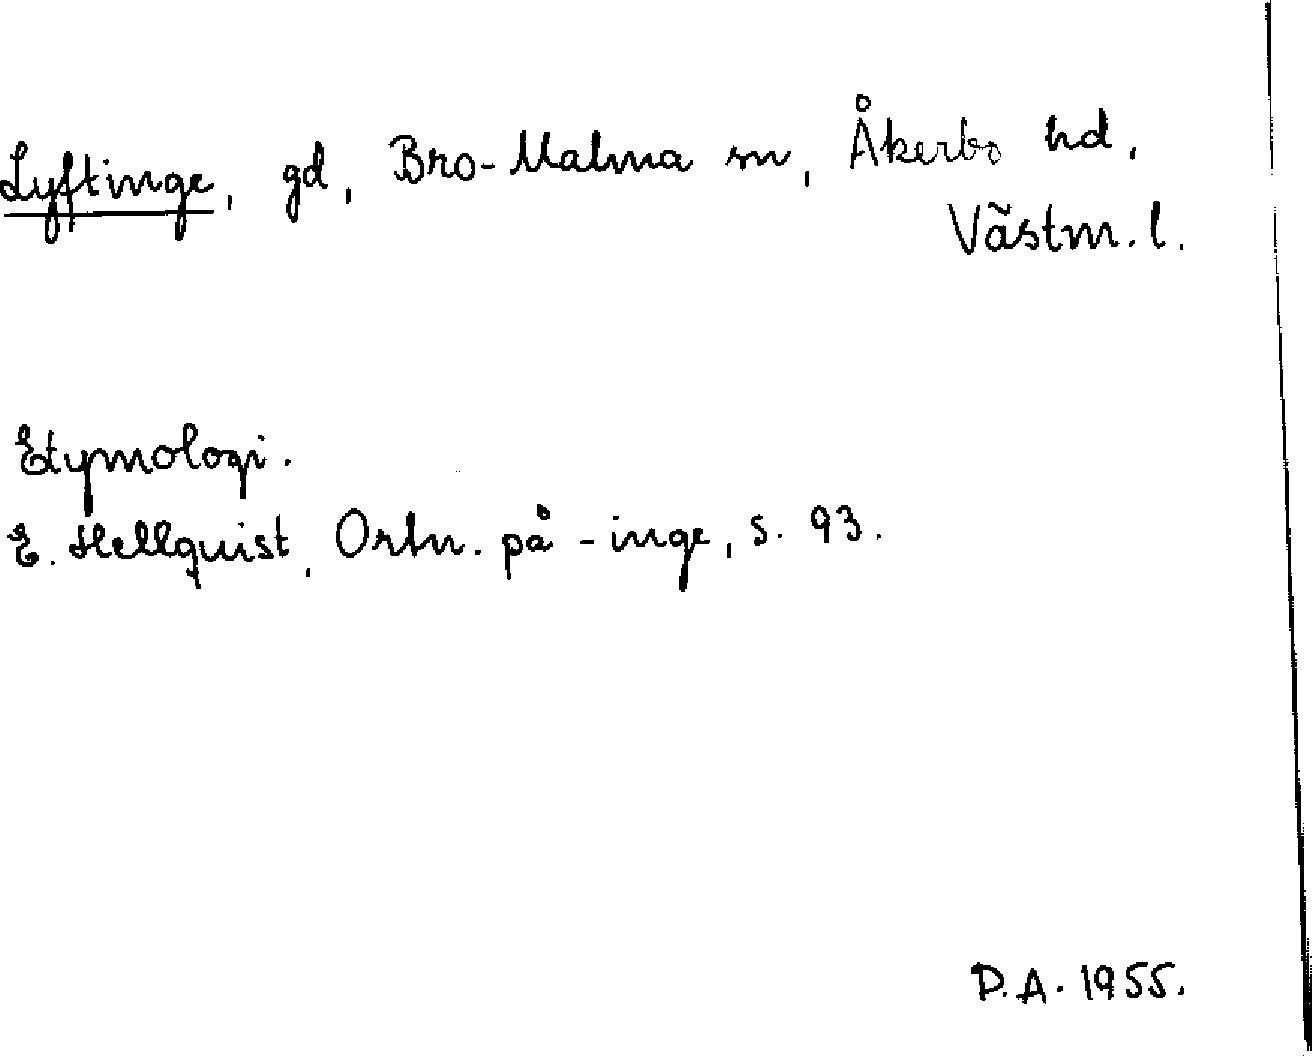 Lyftinge, gd, Bro-Malma sn, Åkerbo hd,
Västm. l.
Etymologi.
E. Hellquist, Ortn. på -inge, s. 93.
D.A. 1955.